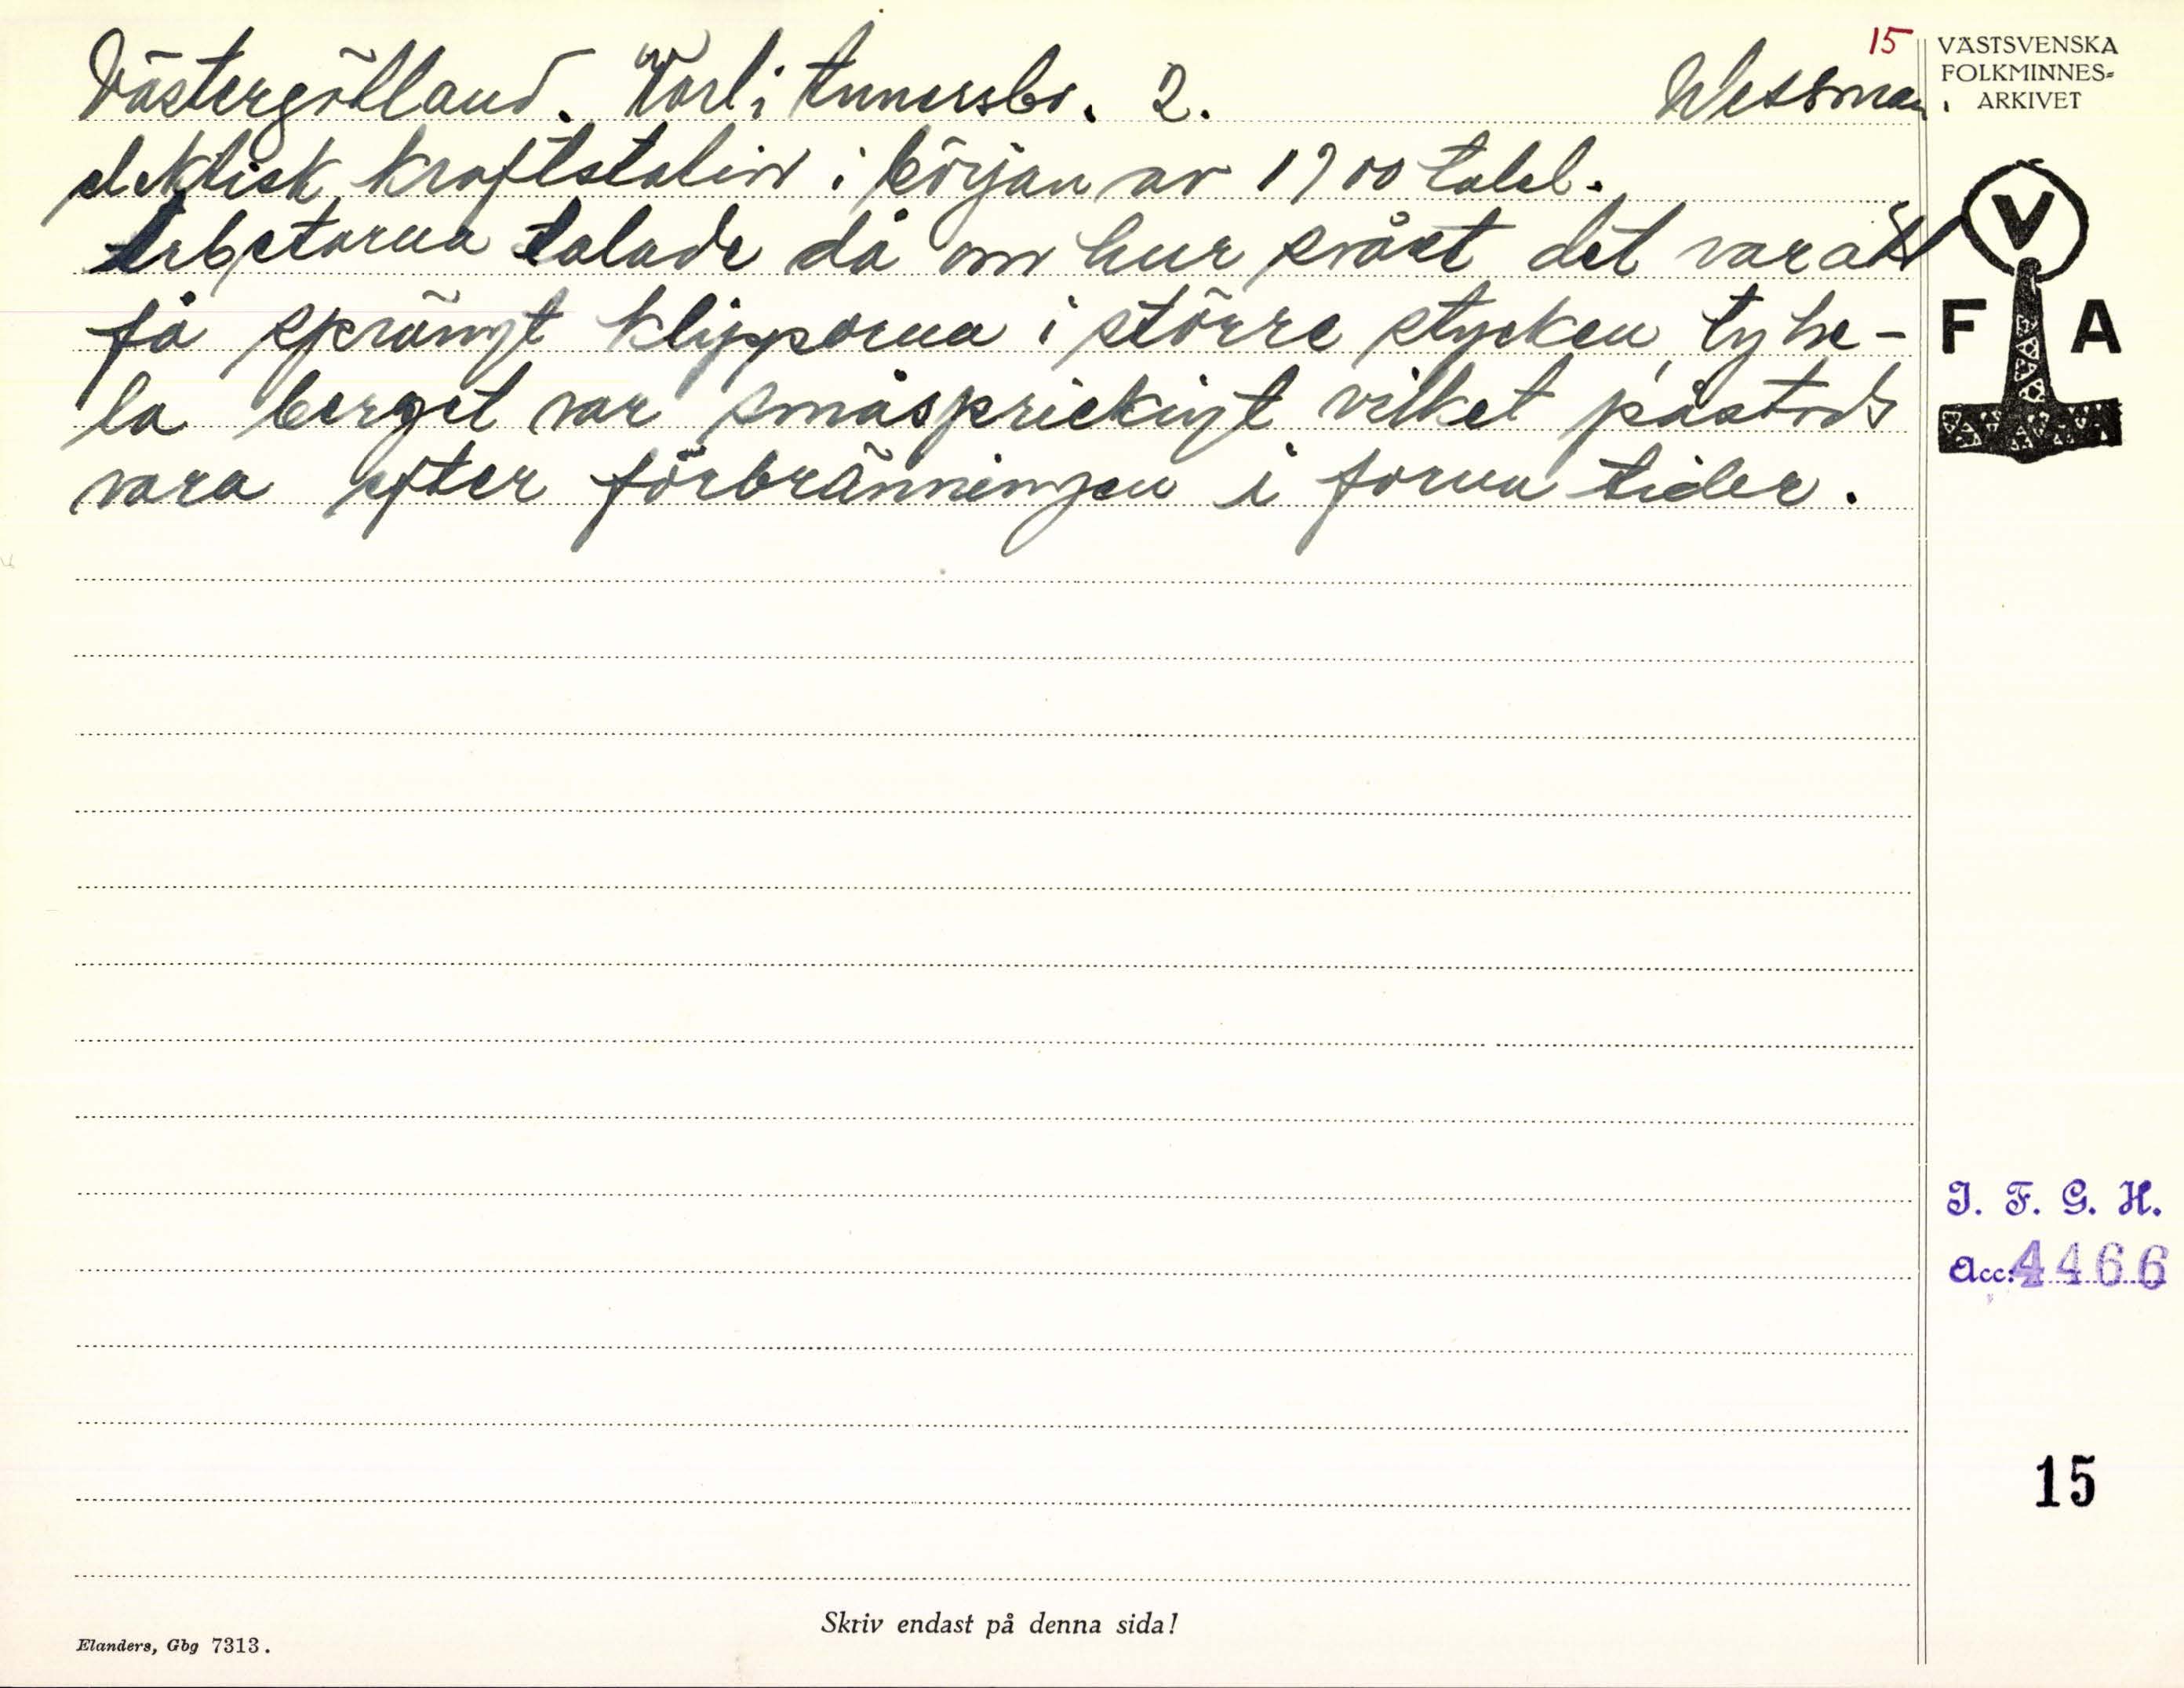 15
Västergötland. 2. Wessman.
elektrisk kraftstation i början av 1900 talet.
Arbetarna talade då om hur svårt det var att
få sprängt klipporna i större stycken, ty he-
la berget var småsprickigt vilket påstods
vara efter förbränningen i forna tider.
VÄSTSVENSKA
FOLKMINNES-
ARKIVET
V
F A
I. F. G. H.
Acc: 4466
15
Skriv endast på denna sida!
Elanders, Gbg 7313.